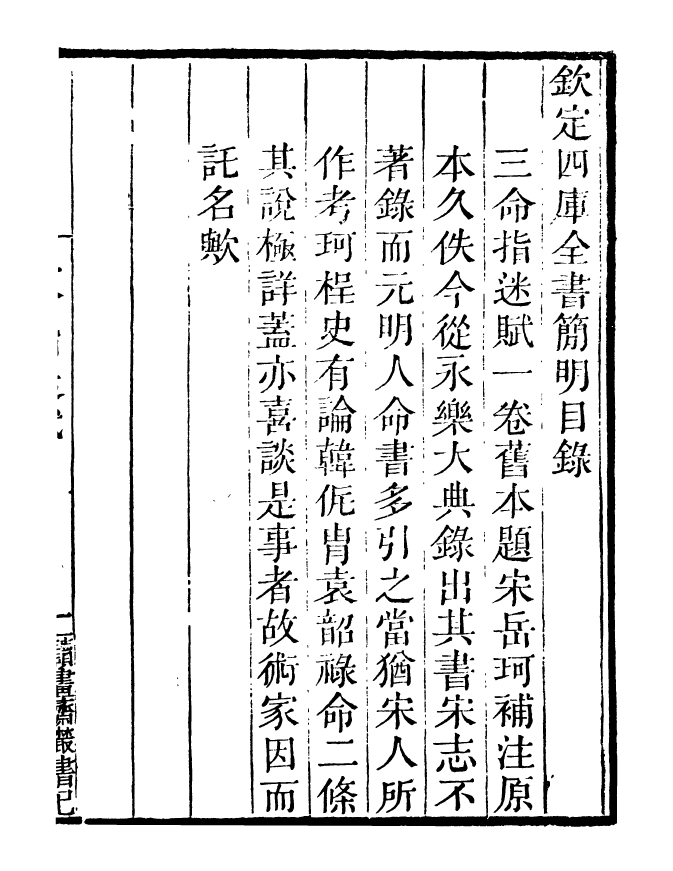 欽定四庫全書簡明目錄
三命指迷賦一卷舊本題宋岳珂補注原
本久佚今從永樂大典錄出其書宋志不
著錄而元明人命書多引之當猶宋人所
作考珂桯史有論韓侂胄袁韶祿命二條
其說極詳蓋亦喜談是事者故術家因而
託名歟
讀畫齋叢書己